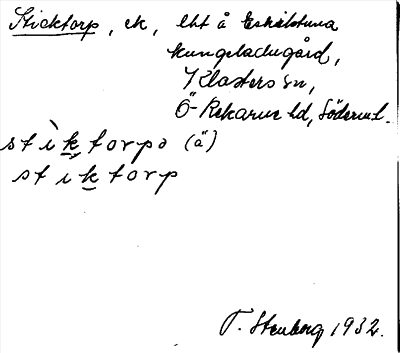 Sticktorp, ek, lht å Eskilstuna
kungsladugård,
Klosters sn,
Ö Rekarne hd, Söderml.
stìktorpə (ä)
stíktorp
T. Stenberg 1932.